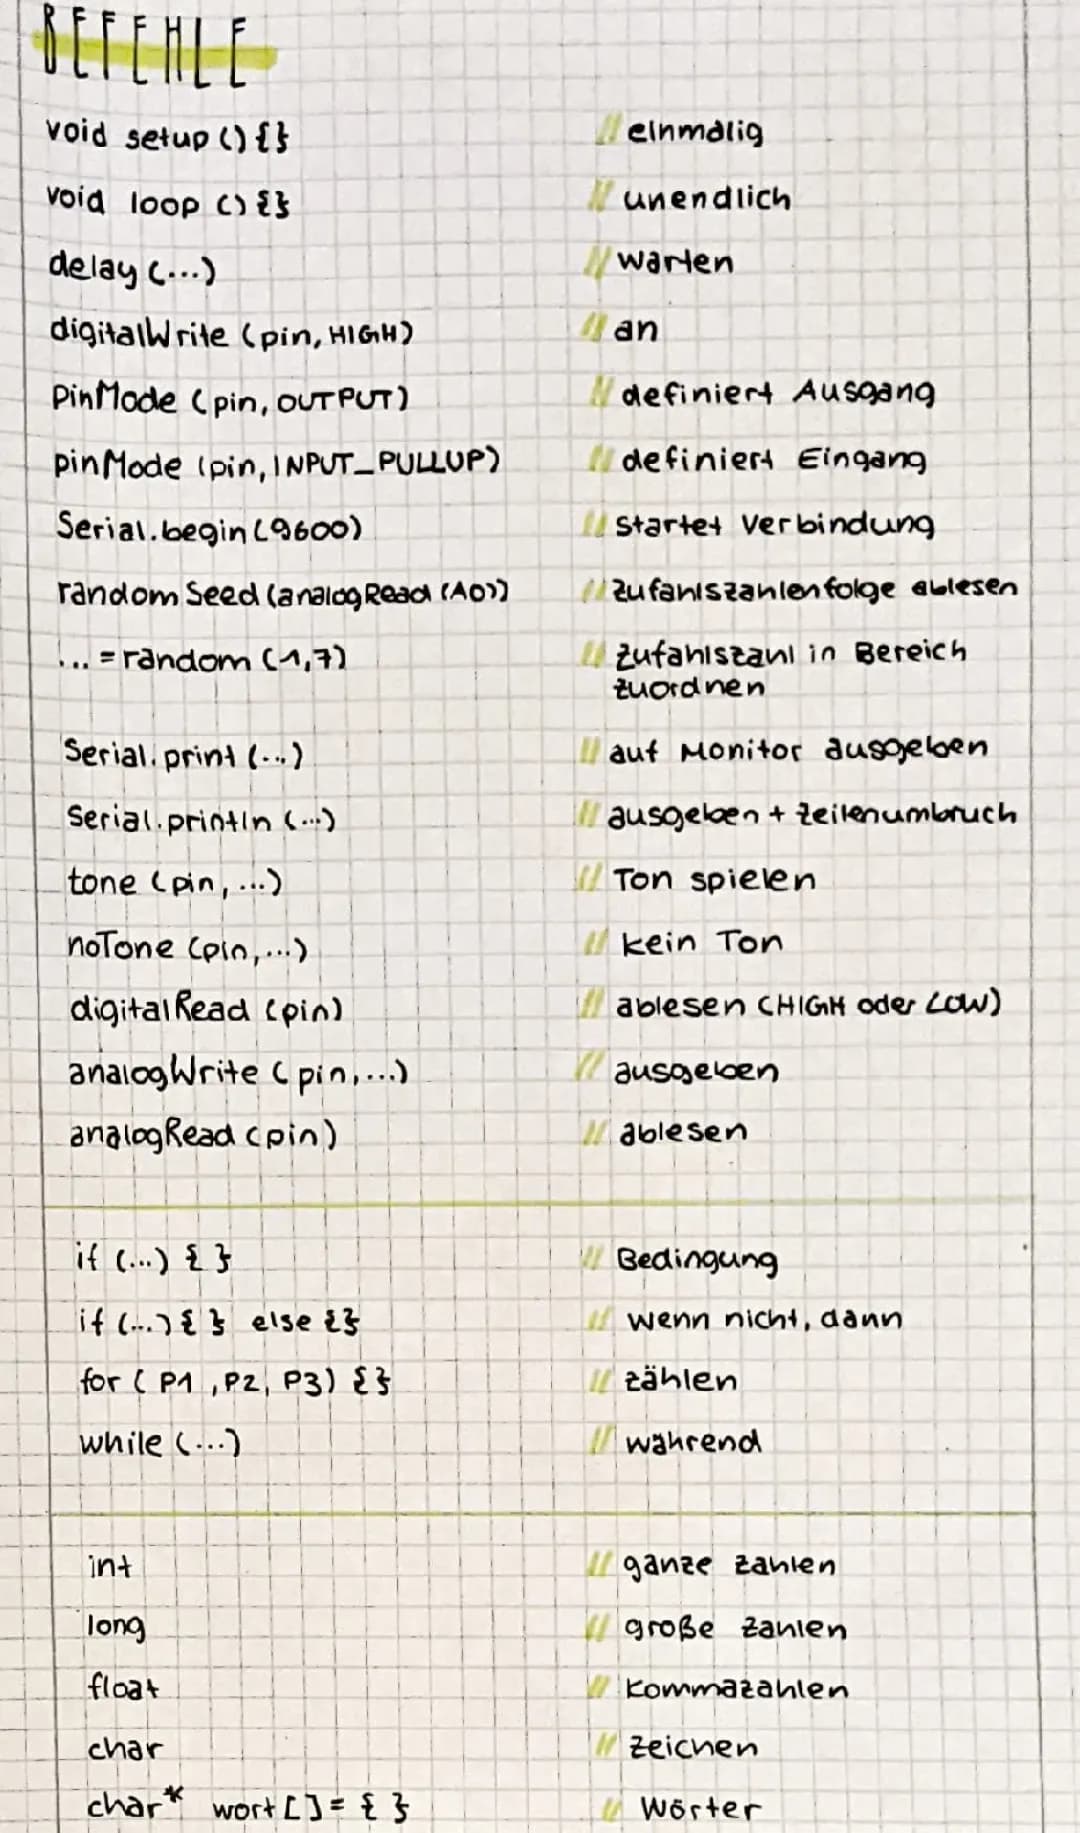 BEFEHLE
void setup () {} // einmalig
void loop () {} // unendlich
delay (...) // warten
digitalWrite (pin, HIGH) // an
PinMode (pin, OUTPUT) // definiert Ausgang
pinMode (pin, INPUT_PULLUP) // definiert Eingang
Serial.begin (9600) // startet Verbindung
randomSeed (analogRead (A0)) // Zufahlszahlenfolge ablesen
... = random (1,7) // Zufahlszahl in Bereich
zuordnen
Serial.print (...) // auf Monitor ausgeben
Serial.println (...) // ausgeben + Zeilenumbruch
tone (pin, ...) // Ton spielen
noTone (pin, ...) // kein Ton
digitalRead (pin) // ablesen (HIGH oder LOW)
analogWrite (pin, ...) // ausgeben
analogRead (pin) // ablesen
if (...) { } // Bedingung
if (...) { } else {} // wenn nicht, dann
for ( P1 , P2, P3) {} // zählen
while (...) // während
int // ganze Zahlen
long // große Zahlen
float // Kommazahlen
char // Zeichen
char* wort [] = { } // Wörter